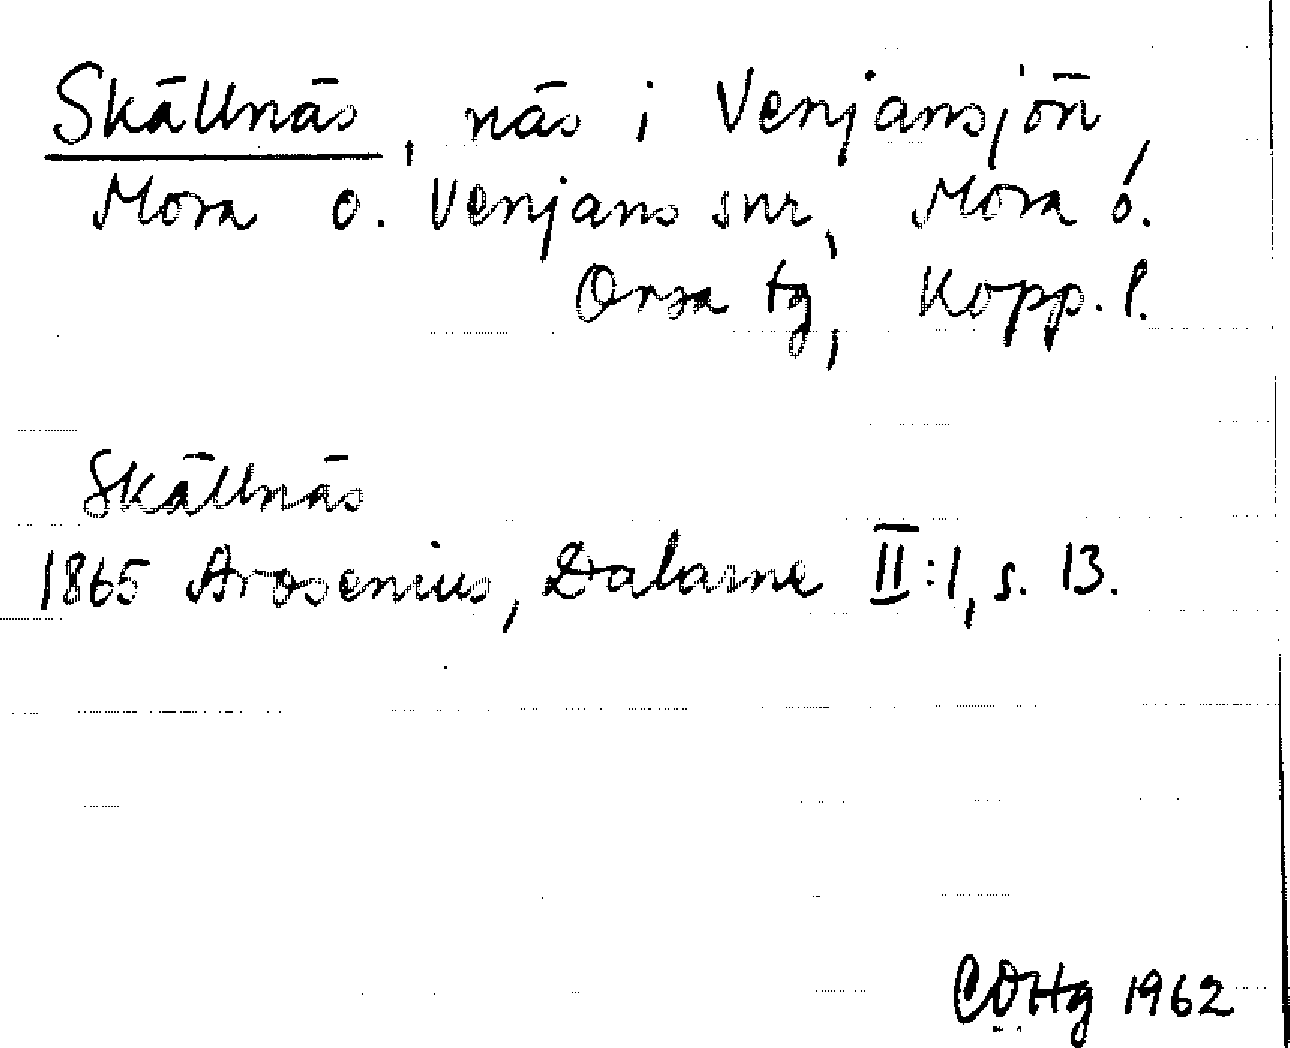 Skällnäs, näs i Venjansjön,
Mora o. Venjans snr, Mora o.
Orsa tg, Kopp. l.
Skällnäs
1865 Arosenius, Dalarne II:1, s. 13.
COHg 1962